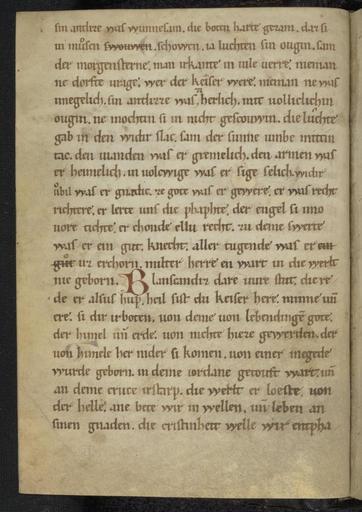 sin antlize was wunnesam. die boten harte gezam. daz si
in mûsen schowen. ia luchten sin ougin. sam
der morgensterne. man irkante in uile uerre. nieman
ne dorfte urage. wer der keiser were. nieman ne was
innegelich. sin antluzze was herlich. mit uollichlichin
ougin. ne mochtin si in nicht gescouwin. die lûchte
gab in den widir slac. sam der sunne umbe mitten
tac. den uianden was er gremelich. den armen was
er heimelich. in uolcwige was er sige selich. widir
ûbil was er gnadic. ze gote was er gewere. er was recht
richtere. er lerte uns die phachte. der engel si imo
uore tichte. er chonde ellu recht. zu deme swerte
was er ein gût knecht. aller tugende was er
uz erchorn. milter herre en wart in die werlt
nie geborn. Blansandiz dare uure stût. die re
de er alsus hûp. heil sist du keiser here. minne uñ
ere. si dir irboten. uon deme uon lebendingē gote.
der himel uñ erde. uon nichte hieze gewerden. der
uon himele her nider si komen. uon einer megede
wurde geborn. in deme iordane getouft wart. uñ
an deme cruce irstarp. die werlt er loeste. uon
der helle. ane bete wir in wellen. uñ leben an
sinen gnaden. die cristinheit welle wir entpha